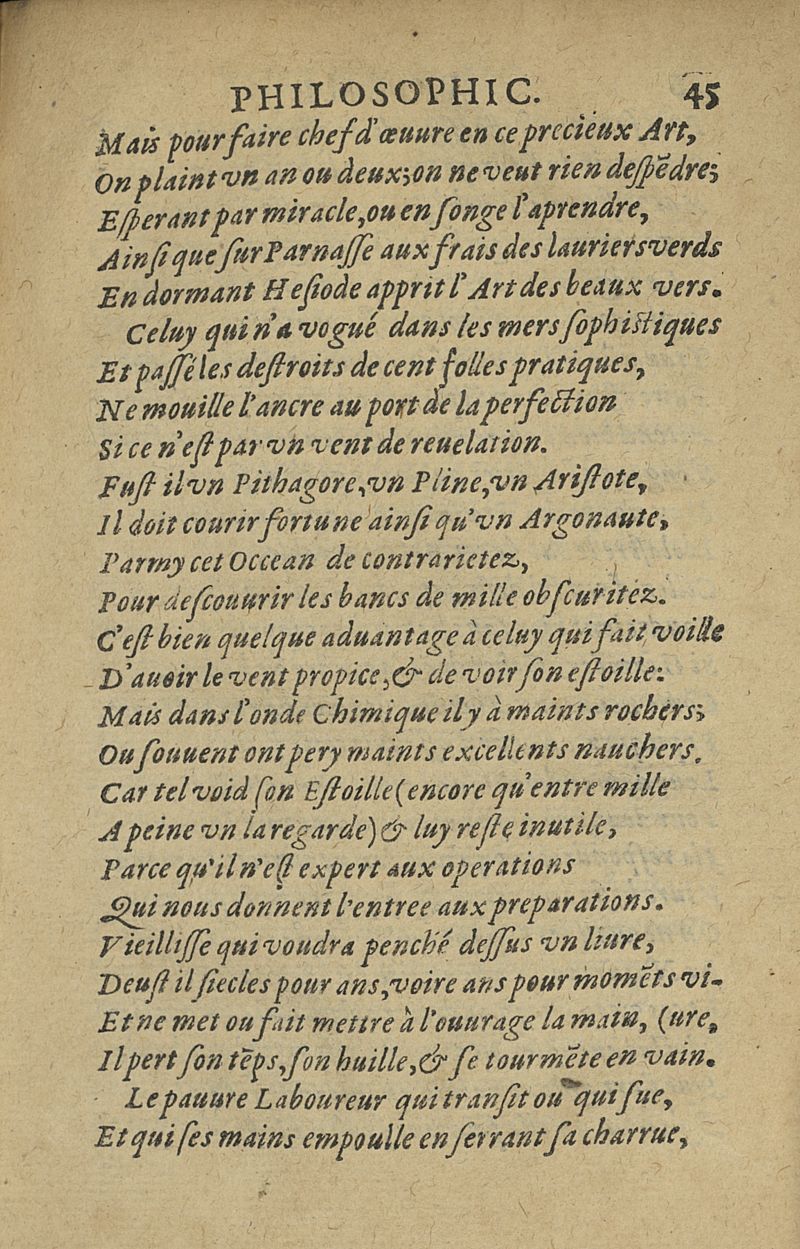 PHILOSOPHIC. 45
Mais pour faire chef d'œuure en ce precieux Art,
On plaint vn an ou deux;on ne veut rien deſpẽdre;
Eſperant par miracle,ou en ſonge l'aprendre,
Ainſi que ſur Parnaſſe aux frais des lauriers verds
En dormant Heſiode apprit l'Art des beaux vers.
Celuy qui n'a vogué dans les mers ſophiſtiques
Et paſſé les deſtroits de cent folles pratiques,
Ne mouille l'ancre au port de la perfection
Si ce n'eſt par vn vent de reuelation.
Fuſt il vn Pithagore,vn Pline,vn Ariſtote,
Il doit courir fortune ainſi qu'vn Argonaute,
Parmy cet Occean de contrarietez,
Pour deſcouurir les bancs de mille obſcuritez.
C'eſt bien quelque aduantage à celuy qui fait voille
D'auoir le vent propice,& de voir ſon eſtoille:
Mais dans l'onde Chimique il y à maints rochers;
Ou ſouuent ont pery maints excellents nauchers.
Car tel void ſon Eſtoille(encore qu'entre mille
A peine vn la regarde)& luy reſte inutile,
Parce qu'il n'eſt expert aux operations
Qui nous donnent l'entree aux preparations.
Vieilliſſe qui voudra penché deſſus vn liure,
Deuſt il ſiecles pour ans,voire ans pour momẽts vi-
Et ne met ou fait mettre à l'ouurage la main, (ure,
Il pert ſon tẽps,ſon huille,& ſe tourmẽte en vain.
Le pauure Laboureur qui tranſit ou qui ſue,
Et qui ſes mains empoulle en ſerrant ſa charrue,